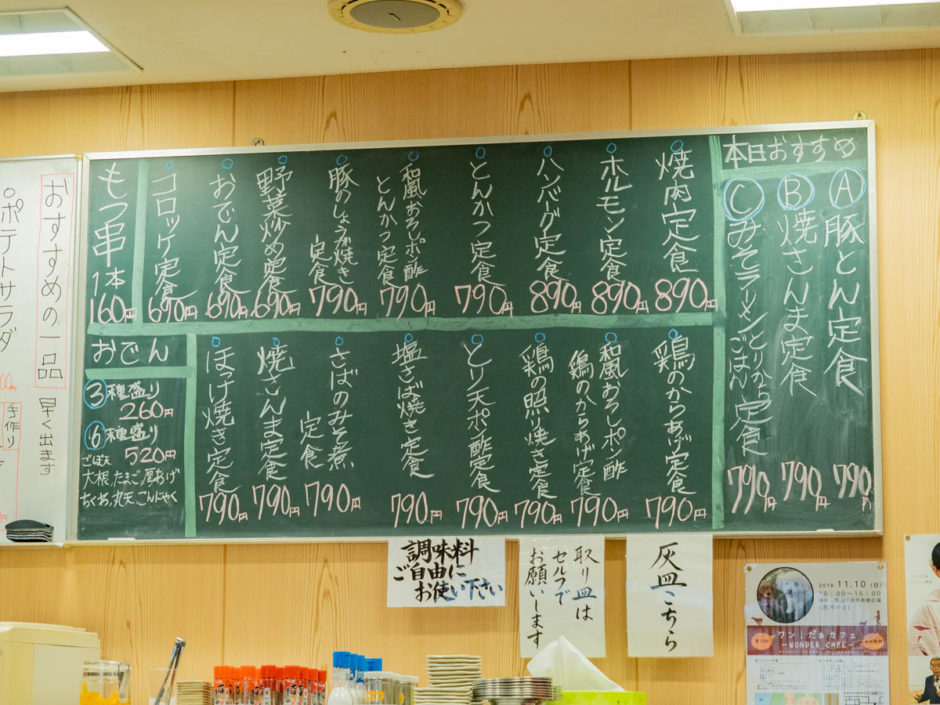 本日おすすめ
Ⓐ豚とん定食
790円
Ⓑ焼さんま定食
790円
Ⓒみそラーメンとりから
ごはん
定食
790円
焼肉定食
890円
ホルモン定食
890円
ハンバグ定食
890円
とんかつ定食
790円
和風おろしポン酢
とんかつ定食
790円
豚のしょうが焼き
定食
790円
野菜炒め定食
690円
おでん定食
690円
コロッケ定食
690円
もつ串
1本
160円
鶏のからあげ定食
790円
和風おろしポン酢
鶏のからあげ定食
790円
鶏の照り焼き定食
790円
とり天ポン酢定食
790円
塩さば焼き定食
790円
さばのみそ煮
定食
790円
焼さんま定食
790円
ほっけ焼き定食
790円
おでん
③種盛り
260円
⑥種盛り
520円
ごぼ天
大根、たまご、厚あげ
ちくわ、丸天、こんにゃく
おすすめの一品
早く出ます
ポテトサラダ
手作り
調味料
ご自由に
お使い下さい
取り皿は
セルフで
お願いします
灰皿こちら
11.10
10:00~15:00
ワン！だぁカフェ
~WONDER CAFE~